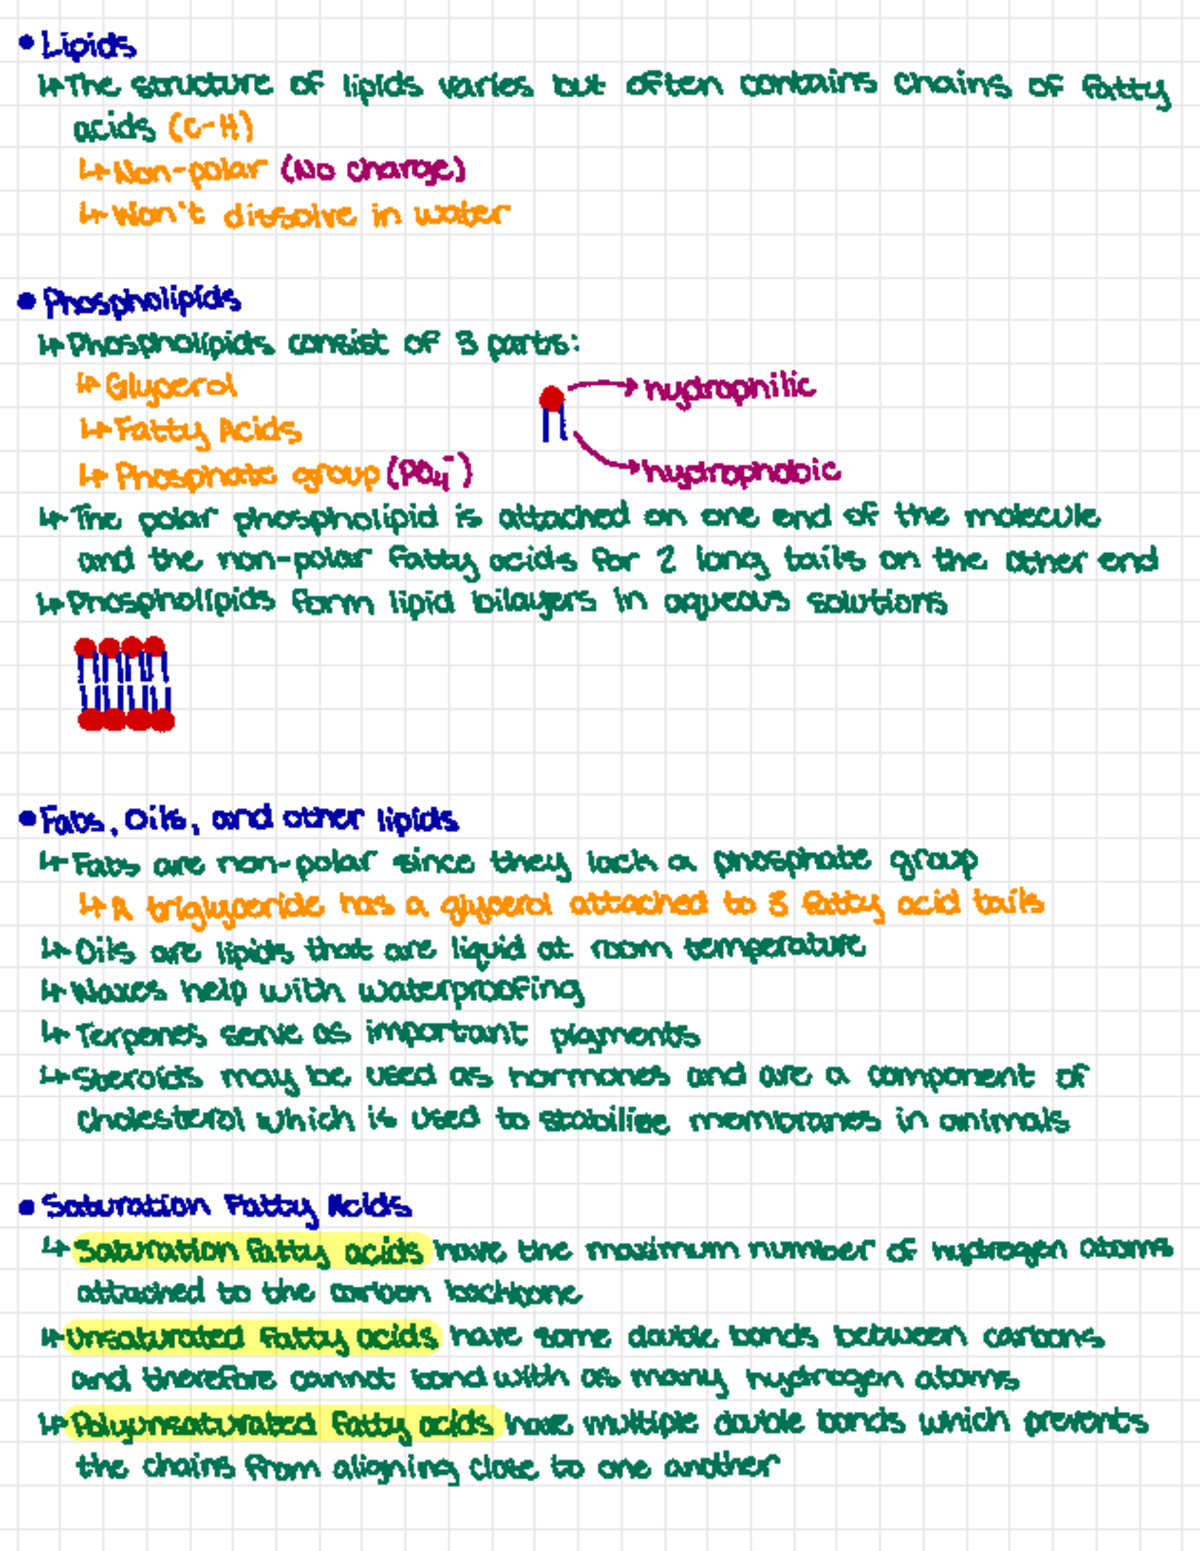 • Lipids
↳ The structure of lipids varies but often contains chains of fatty
acids (C-H)
↳ Non-polar (No charge)
↳ Won't dissolve in water
• Phospholipids
↳ Phospholipids consist of 3 parts:
↳ Glycerol
hydrophilic
↳ Fatty Acids
↳ Phosphate group (PO₄⁻)
hydrophobic
↳ The polar phospholipid is attached on one end of the molecule
and the non-polar fatty acids for 2 long tails on the other end
↳ Phospholipids form lipid bilayers in aqueous solutions
• Fats, Oils, and other lipids
↳ Fats are non-polar since they lack a phosphate group
↳ A triglyceride has a glycerol attached to 3 fatty acid tails
↳ Oils are lipids that are liquid at room temperature
↳ Waxes help with waterproofing
↳ Terpenes serve as important pigments
↳ Steroids may be used as hormones and are a component of
cholesterol which is used to stabilize membranes in animals
• Saturation Fatty Acids
↳ Saturation fatty acids have the maximum number of hydrogen atoms
attached to the carbon backbone
↳ Unsaturated fatty acids have some double bonds between carbons
and therefore cannot bond with as many hydrogen atoms
↳ Polyunsaturated fatty acids have multiple double bonds which prevents
the chains from aligning close to one another